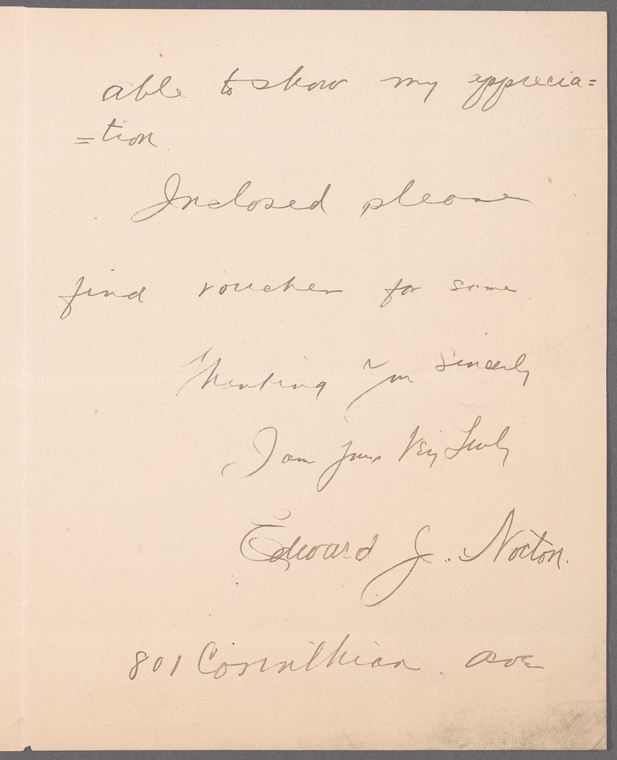 able to show my apprecia=
=tion.
Inclosed please
find voucher for same.
Thanking You Sincerly
I am Yours Very Truly
Edward J. Norton.
801 Corinthian. Ave